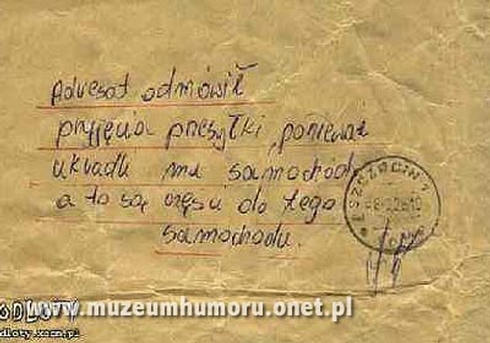 Adresat odmówił
przyjęcia przesyłki, ponieważ
ukradli mu samochód
a to są części do tego
samochodu.
www.muzeumhumoru.onet.pl
ODLOTY